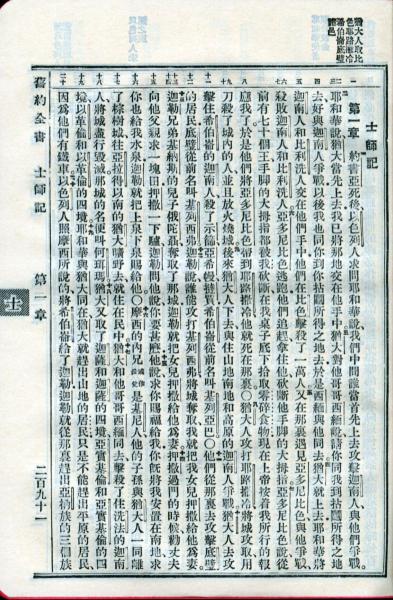 猶大人取比
色耶路撒冷
希伯崙底壁
諸邑
士師記
第一章 約書亞死後以色列人求問耶和華說我們中間誰當首先上去攻擊迦南人與他們爭戰
耶和華說猶大當先上去我已將那地交在他手中猶大對他哥哥西緬說請你同我到拈鬮所得之地
去好與迦南人爭戰以後我也同你到你拈鬮所得之地去於是西緬與他同去猶大就上去耶和華將
迦南人和比利洗人交在他們手中他們在比色擊殺了一萬人又在那裏遇見亞多尼比色與他爭戰
殺敗迦南人和比利洗人亞多尼比色逃跑他們追趕拿住他砍斷他手腳的大拇指亞多尼比色說從
前有七十個王手腳的大拇指都被我砍斷在我桌子底下拾取零碎食物現在上帝按着我所行的報
應我了於是他們將亞多尼比色帶到耶路撒冷他就死在那裏〇猶大人攻打耶路撒冷將城攻取用
刀殺了城內的人並且放火燒城後來猶大人下去與住山地南地和高原的迦南人爭戰猶大人去攻
擊住希伯崙的迦南人殺了示篩亞希幔撻買希伯崙從前名叫基列亞巴〇他們從那裏去攻擊底壁
的居民底壁從前名叫基列西弗迦勒說誰能攻打基列西弗將城奪取我就把我女兒押撒給他為妻
迦勒兄弟基納斯的兒子俄陀聶奪取了那城迦勒就把女兒押撒給他為妻押撒過門的時候勸丈夫
向他父親求一塊田押撒一下驢迦勒問他說你要甚麼他說求你賜福給我你旣將我安置在南地求
你也給我水泉迦勒就把上泉下泉賜給他〇摩西的內兄或作岳父是基尼人他的子孫與猶大人一同離
了棕樹城往亞拉得以南的猶大曠野去就住在民中猶大和他哥哥西緬同去擊殺了住洗法的迦南
人將城盡行毀滅那城的名便叫何珥瑪猶大又取了迦薩和迦薩的四境亞實基倫和亞實基倫的四
境以革倫和以革倫的四境耶和華與猶大同在猶大就趕出山地的居民只是不能趕出平原的居民
因為他們有鐵車以色列人照摩西所說的將希伯崙給了迦勒迦勒就從那裏趕出亞衲族的三個族
舊約全書 士師記 第一章 二百九十一
士